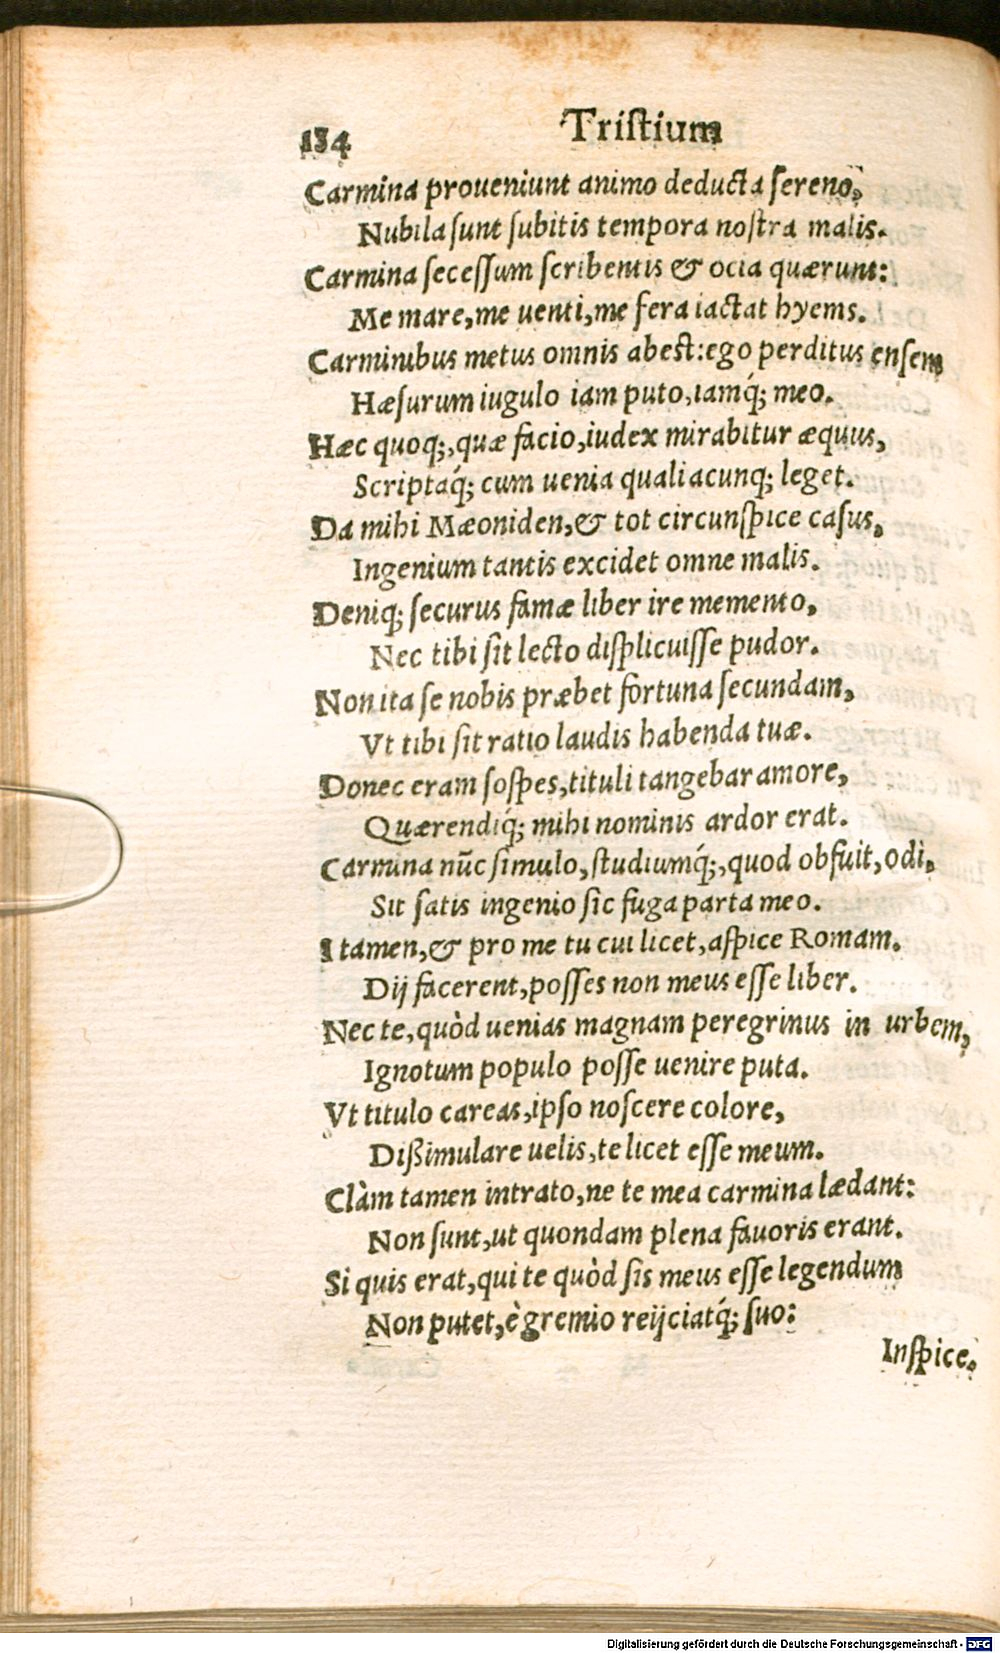 134 Tristium
Carmina proueniunt animo deducta sereno,
Nubila sunt subitis tempora nostra malis.
Carmina secessum scribentis & ocia quærunt:
Me mare, me uenti, me fera iactat hyems.
Carminibus metus omnis abest: ego perditus ensem
Hæsurum iugulo iam puto, iamq́; meo.
Hæc quoq;, quæ facio, iudex mirabitur æquus,
Scriptaq́; cum uenia qualiacunq; leget.
Da mihi Mæoniden, & tot circunspice casus,
Ingenium tantis excidet omne malis.
Deniq; securus famæ liber ire memento,
Nec tibi sit lecto displicuisse pudor.
Non ita se nobis præbet fortuna secundam,
Vt tibi sit ratio laudis habenda tuæ.
Donec eram sospes, tituli tangebar amore,
Quærendiq́; mihi nominis ardor erat.
Carmina nūc simulo, studiumq́;, quod obfuit, odi,
Sit satis ingenio sic fuga parta meo.
I tamen, & pro me tu cui licet, aspice Romam.
Dij facerent, posses non meus esse liber.
Nec te, quòd uenias magnam peregrinus in urbem,
Ignotum populo posse uenire puta.
Vt titulo careas, ipso noscere colore,
Dißimulare uelis, te licet esse meum.
Clàm tamen intrato, ne te mea carmina lædant:
Non sunt, ut quondam plena fauoris erant.
Si quis erat, qui te quòd sis meus esse legendum
Non putet, è gremio reijciatq́; suo:
Inspice,
Digitalisierung gefördert durch die Deutsche Forschungsgemeinschaft - DFG